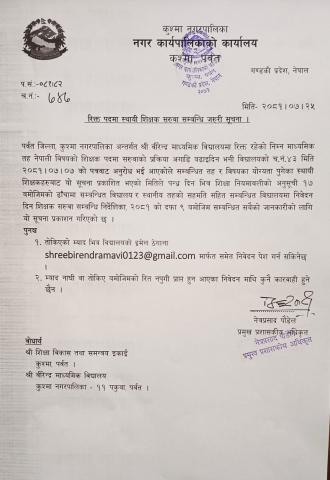 कुश्मा नगरपालिका
नगर कार्यपालिकाको कार्यालय
कुश्मा, पर्वत
गण्डकी प्रदेश, नेपाल
प.सं.-०८१/८२
च.नं.- ६४६
मिति- २०८१/०७/२५
रिक्त पदमा स्थायी शिक्षक सरुवा सम्बन्धि जरुरी सूचना ।
पर्वत जिल्ला, कुश्मा नगरपालिका अन्तर्गत श्री बीरेन्द्र माध्यमिक विद्यालयमा रिक्त रहेको निम्न माध्यमिक
तह नेपाली विषयको शिक्षक पदमा सरुवाको प्रक्रिया अगाडि बढाइदिन भनी विद्यालयको च.नं.४२ मिति
२०८१/०७/०७ को पत्रबाट अनुरोध भई आएकोले सम्बन्धित तह र विषयका योग्यता पुगेका स्थायी
शिक्षकहरुबाट यो सूचना प्रकाशित भएको मितिले पन्ध्र दिन भित्र शिक्षा नियमावलीको अनुसूची १७
बमोजिमको ढाँचामा सम्बन्धित विद्यालय र स्थानीय तहको सहमति सहित सम्बन्धित विद्यालयमा निवेदन
दिन शिक्षक सरुवा सम्बन्धि निर्देशिका, २०८० को दफा ९ बमोजिम सम्बन्धित सबैको जानकारीको लागि
यो सूचना प्रकाशन गरिएको छ ।
पुनश्च
१. तोकिएको म्याद भित्र विद्यालयको इमेल ठेगाना
shreebirendramavi0123@gmail.com मार्फत समेत निवेदन पेश गर्न सकिनेछ
।
२. म्याद नाघी वा तोकिए बमोजिमको रित नपुगी प्राप्त हुन आएका निवेदन माथि कुनै कारवाही हुने
छैन ।
नेत्रप्रसाद पौडेल
प्रमुख प्रशासकीय अधिकृत
नेत्रप्रसाद पौडेल
प्रमुख प्रशासकीय अधिकृत
बोधार्थ
श्री शिक्षा विकास तथा समन्वय इकाई
कुश्मा, पर्वत ।
श्री बीरेन्द्र माध्यमिक विद्यालय
कुश्मा नगरपालिका - ११ पकुवा पर्वत ।